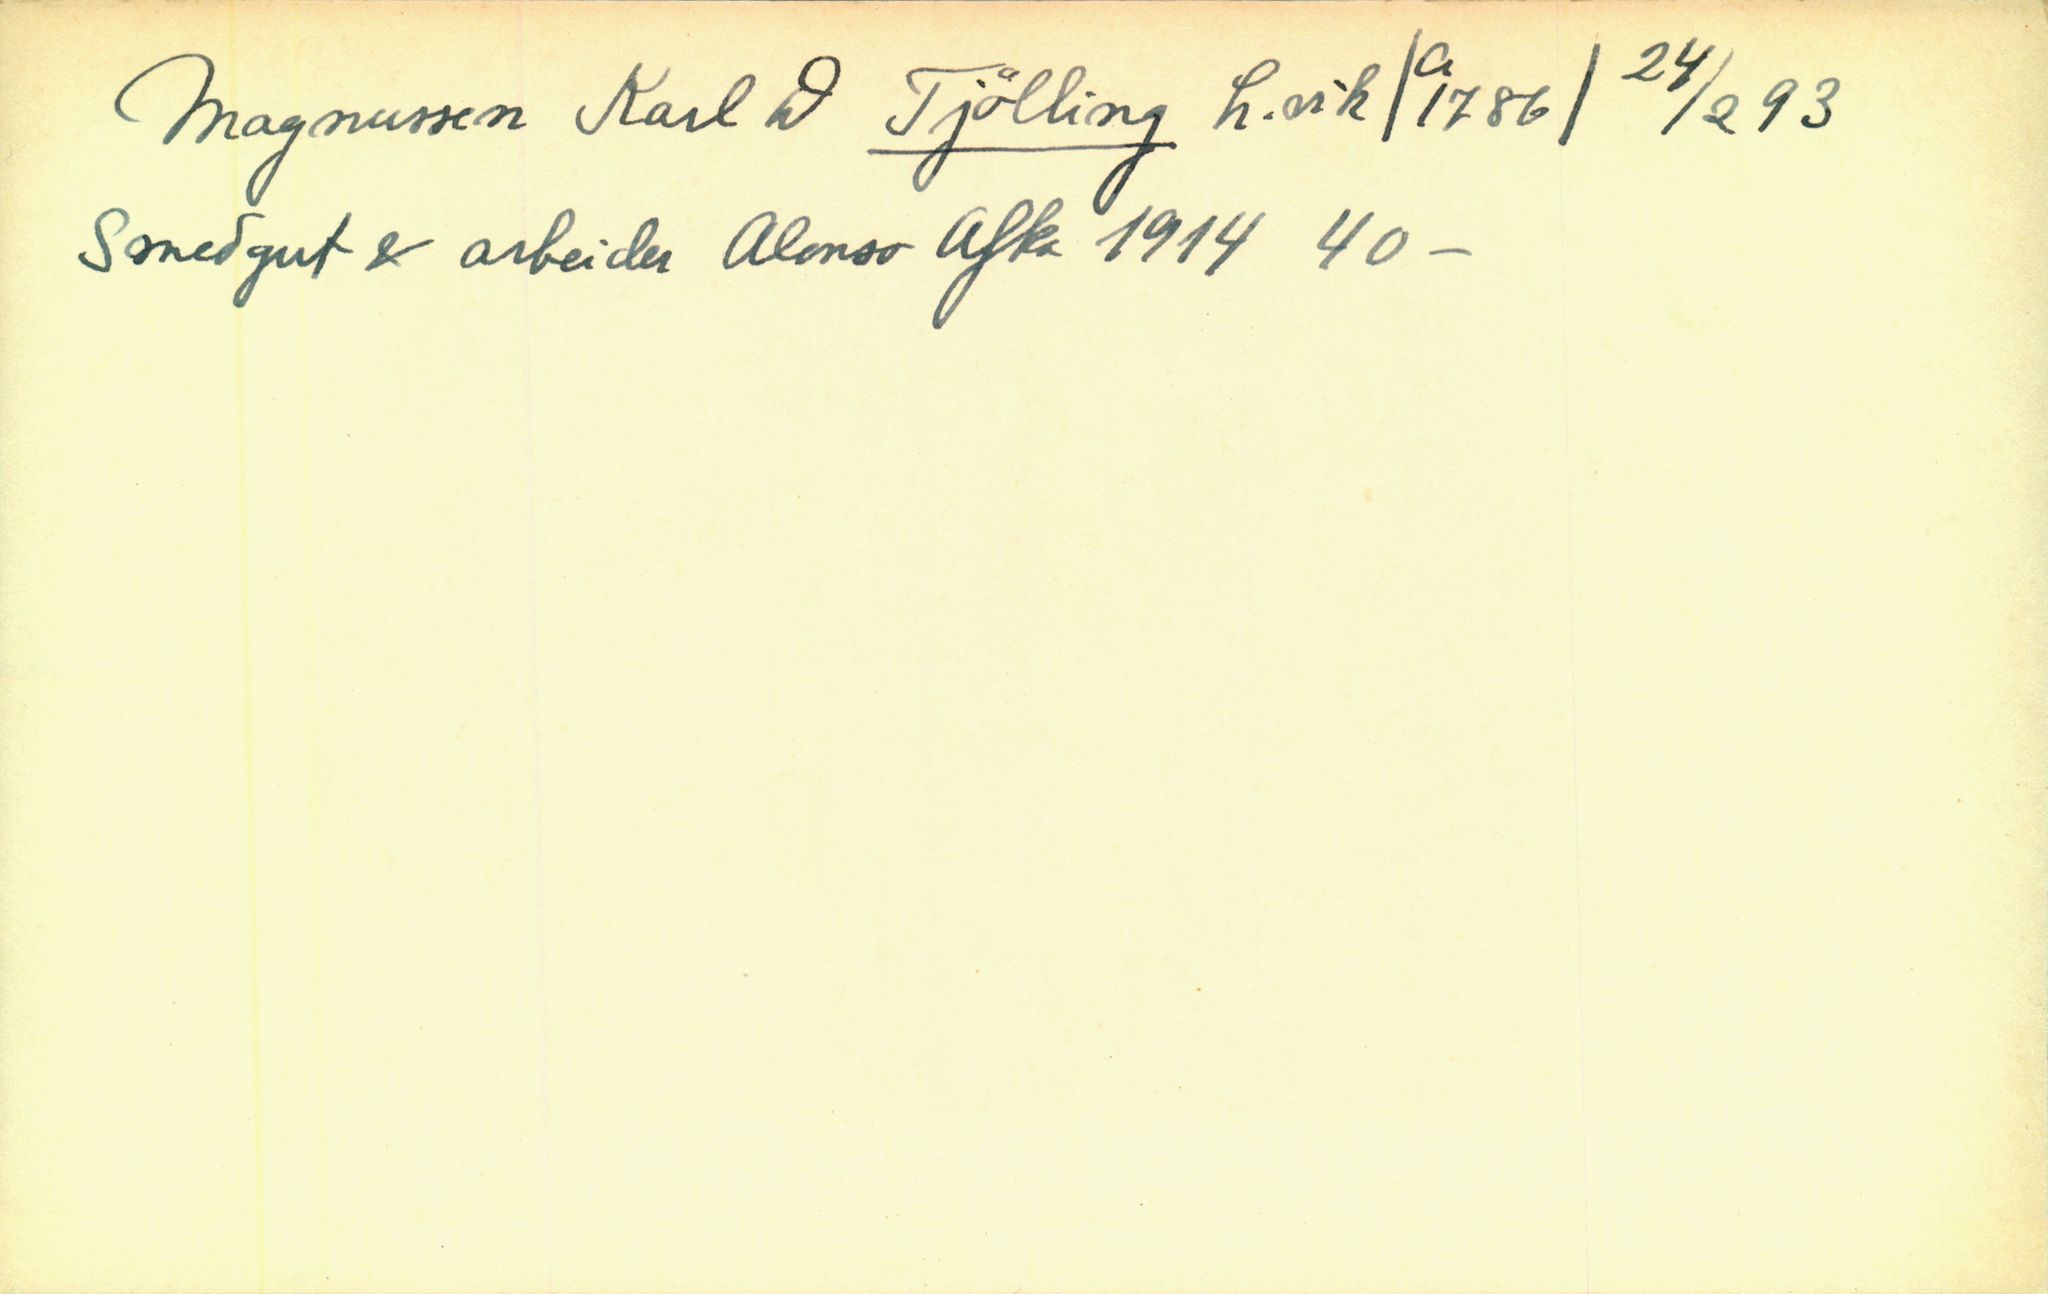 Magnussen Karl D Tjölling L.vik |a 1786| 24/2 93
Smedgut & arbeider Alonso Afka 1914 40 –